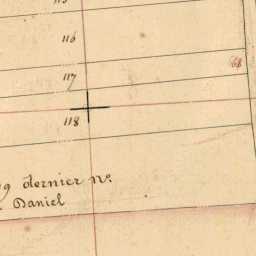 116
117
68
118
dernier nº.
Daniel